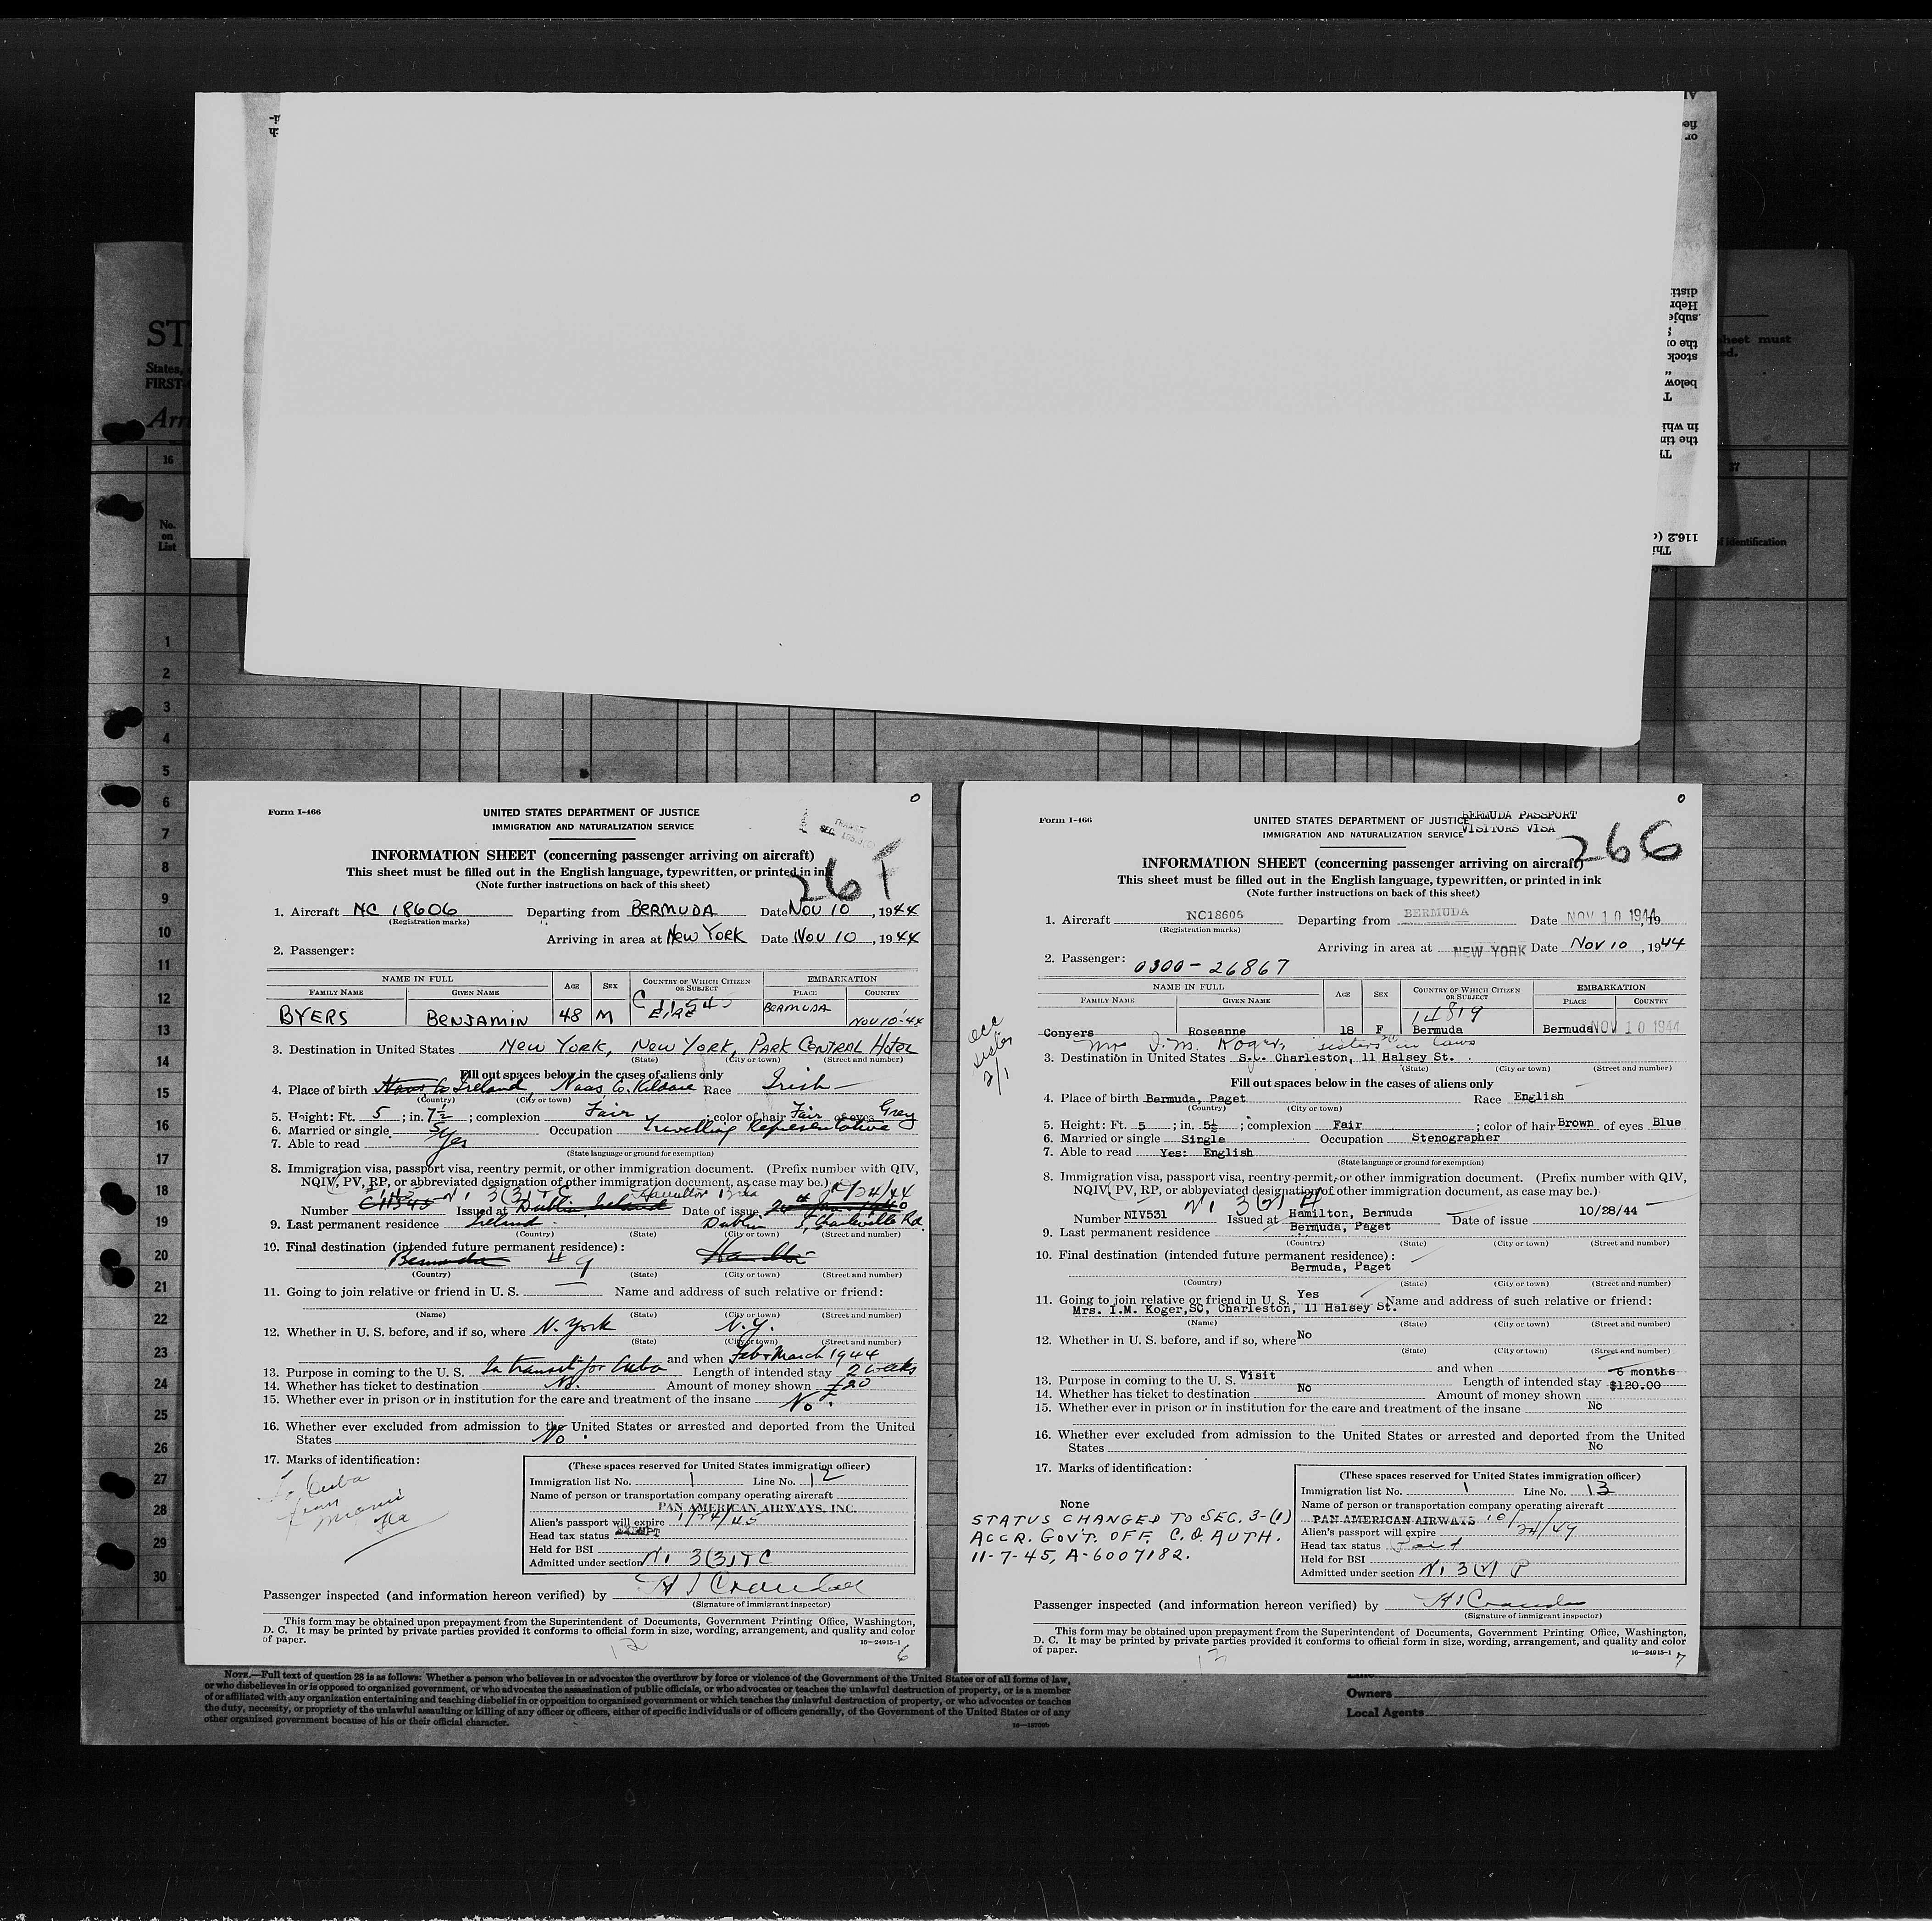 ST
States,
FIRST-
Arri
sheet must
ed.
16
37
No.
on
List
of identification
1
2
3
4
5
6
7
8
9
10
11
12
13
14
15
16
17
18
19
20
21
22
23
24
25
26
27
28
29
30
Form I-466
UNITED STATES DEPARTMENT OF JUSTICE
IMMIGRATION AND NATURALIZATION SERVICE
INFORMATION SHEET (concerning passenger arriving on aircraft)
This sheet must be filled out in the English language, typewritten, or printed in ink
(Note further instructions on back of this sheet)
1. Aircraft NC 18606 Departing from BERMUDA Date NOV 10, 1944
(Registration marks)
Arriving in area at NEW YORK Date NOV 10, 1944
2. Passenger:
NAME IN FULL AGE SEX COUNTRY OF WHICH CITIZEN OR SUBJECT EMBARKATION
FAMILY NAME GIVEN NAME PLACE COUNTRY
BYERS BENJAMIN 48 M EIRE BERMUDA NOV 10-44
3. Destination in United States NEW YORK, NEW YORK, PARK CENTRAL Hotel
(State) (City or town) (Street and number)
Fill out spaces below in the cases of aliens only
4. Place of birth Ireland, Naas, Co. Kildare Race Irish
(Country) (City or town)
5. Height: Ft. 5; in. 7½; complexion Fair; color of hair Fair of eyes Grey
6. Married or single S Occupation Travelling Representative
7. Able to read Yes
(State language or ground for exemption)
8. Immigration visa, passport visa, reentry permit, or other immigration document. (Prefix number with QIV,
NQIV, PV, RP, or abbreviated designation of other immigration document, as case may be.)
NI 3(3) TC Hamilton Bda
Number C11545 Issued at Dublin, Ireland Date of issue
9. Last permanent residence Ireland Dublin 5, Charleville Rd.
(Country) (State) (City or town) (Street and number)
10. Final destination (intended future permanent residence):
Bermuda #9
(Country) (State) (City or town) (Street and number)
11. Going to join relative or friend in U. S. Name and address of such relative or friend:
(Name) (State) (City or town) (Street and number)
12. Whether in U. S. before, and if so, where N. York N.Y.
(State) (City or town) (Street and number)
and when Feb & March 1944
13. Purpose in coming to the U. S. In transit for Cuba Length of intended stay 2 weeks
14. Whether has ticket to destination No. Amount of money shown £20
15. Whether ever in prison or in institution for the care and treatment of the insane No.
16. Whether ever excluded from admission to the United States or arrested and deported from the United
States No.
17. Marks of identification:
To Cuba
from
Miami
Fla
(These spaces reserved for United States immigration officer)
Immigration list No. 1 Line No. 12
Name of person or transportation company operating aircraft
PAN AMERICAN AIRWAYS, INC.
Alien's passport will expire 1/24/45
Head tax status EXEMPT
Held for BSI
Admitted under section NI 3(3) TC
Passenger inspected (and information hereon verified) by
(Signature of immigrant inspector)
This form may be obtained upon prepayment from the Superintendent of Documents, Government Printing Office, Washington,
D. C. It may be printed by private parties provided it conforms to official form in size, wording, arrangement, and quality and color
of paper.
16—24915-1
12
6
Form I-466
UNITED STATES DEPARTMENT OF JUSTICE
IMMIGRATION AND NATURALIZATION SERVICE
BERMUDA PASSPORT
VISITORS VISA
266
INFORMATION SHEET (concerning passenger arriving on aircraft)
This sheet must be filled out in the English language, typewritten, or printed in ink
(Note further instructions on back of this sheet)
1. Aircraft NC18606 Departing from BERMUDA Date NOV 10 1944 19
(Registration marks)
Arriving in area at NEW YORK Date NOV 10, 1944
2. Passenger: 0300-26867
NAME IN FULL AGE SEX COUNTRY OF WHICH CITIZEN OR SUBJECT EMBARKATION
FAMILY NAME GIVEN NAME PLACE COUNTRY
14819
Conyers Roseanne 18 F Bermuda Bermuda NOV 10 1944
Mrs I.M. Koger, sisters in laws
3. Destination in United States S.C. Charleston, 11 Halsey St.
(State) (City or town) (Street and number)
Fill out spaces below in the cases of aliens only
4. Place of birth Bermuda, Paget Race English
(Country) (City or town)
5. Height: Ft. 5; in. 5½; complexion Fair; color of hair Brown of eyes Blue
6. Married or single Single Occupation Stenographer
7. Able to read Yes: English
(State language or ground for exemption)
8. Immigration visa, passport visa, reentry permit, or other immigration document. (Prefix number with QIV,
NQIV, PV, RP, or abbreviated designation of other immigration document, as case may be.)
Number NIV531 Issued at Hamilton, Bermuda Date of issue 10/28/44
9. Last permanent residence Bermuda, Paget
(Country) (State) (City or town) (Street and number)
10. Final destination (intended future permanent residence):
Bermuda, Paget
(Country) (State) (City or town) (Street and number)
11. Going to join relative or friend in U. S. Yes Name and address of such relative or friend:
Mrs. I.M. Koger,SC, Charleston, 11 Halsey St.
(Name) (State) (City or town) (Street and number)
12. Whether in U. S. before, and if so, where No
(State) (City or town) (Street and number)
and when
13. Purpose in coming to the U. S. Visit Length of intended stay 6 months
14. Whether has ticket to destination No Amount of money shown $120.00
15. Whether ever in prison or in institution for the care and treatment of the insane No
16. Whether ever excluded from admission to the United States or arrested and deported from the United
States No
17. Marks of identification:
None
STATUS CHANGED TO SEC. 3-(1)
ACCR. GOV'T. OFF. C.O. AUTH.
11-7-45, A-6007182.
(These spaces reserved for United States immigration officer)
Immigration list No. 1 Line No. 13
Name of person or transportation company operating aircraft
PAN AMERICAN AIRWAYS
Alien's passport will expire 10/24/49
Head tax status Paid
Held for BSI
Admitted under section NI 3(2) P
Passenger inspected (and information hereon verified) by
(Signature of immigrant inspector)
This form may be obtained upon prepayment from the Superintendent of Documents, Government Printing Office, Washington,
D. C. It may be printed by private parties provided it conforms to official form in size, wording, arrangement, and quality and color
of paper.
16—24915-1
7
NOTE.—Full text of question 28 is as follows: Whether a person who believes in or advocates the overthrow by force or violence of the Government of the United States or of all forms of law,
or who disbelieves in or is opposed to organized government, or who advocates the assassination of public officials, or who advocates or teaches the unlawful destruction of property, or is a member
of or affiliated with any organization entertaining and teaching disbelief in or opposition to organized government or which teaches the unlawful destruction of property, or who advocates or teaches
the duty, necessity, or propriety of the unlawful assaulting or killing of any officer or officers, either of specific individuals or of officers generally, of the Government of the United States or of any
other organized government because of his or their official character.
Owners
Local Agents